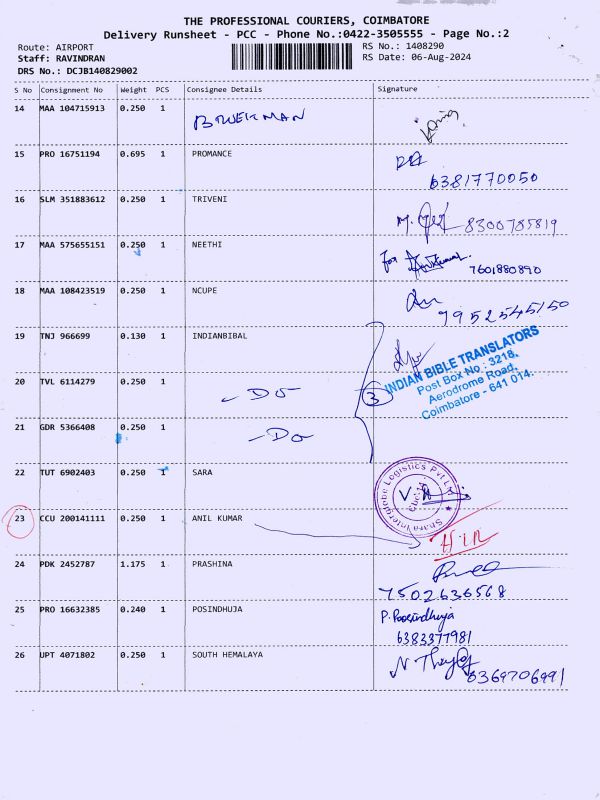 THE PROFESSIONAL COURIERS, COIMBATORE
Delivery Runsheet - PCC - Phone No.:0422-3505555 - Page No.:2
Route: AIRPORT RS No.: 1408290
Staff: RAVINDRAN RS Date: 06-Aug-2024
DRS No.: DCJB140829002
S No Consignment No Weight PCS Consignee Details Signature
14 MAA 104715913 0.250 1
15 PRO 16751194 0.695 1 PROMANCE
6381770050
16 SLM 351883612 0.250 1 TRIVENI
8300785819
17 MAA 575655151 0.250 1 NEETHI
for
7601880890
18 MAA 108423519 0.250 1 NCUPE
7952545150
19 TNJ 966699 0.130 1 INDIANBIBAL
3
INDIAN BIBLE TRANSLATORS
Post Box No : 3218,
Aerodrome Road,
Coimbatore - 641 014.
20 TVL 6114279 0.250 1 - Do
21 GDR 5366408 0.250 1 - Do
22 TUT 6902403 0.250 1 SARA
23 CCU 200141111 0.250 1 ANIL KUMAR
24 PDK 2452787 1.175 1 PRASHINA
7502636568
25 PRO 16632385 0.240 1 POSINDHUJA P. Poosindhuja
6383377981
26 UPT 4071802 0.250 1 SOUTH HEMALAYA
8369706991